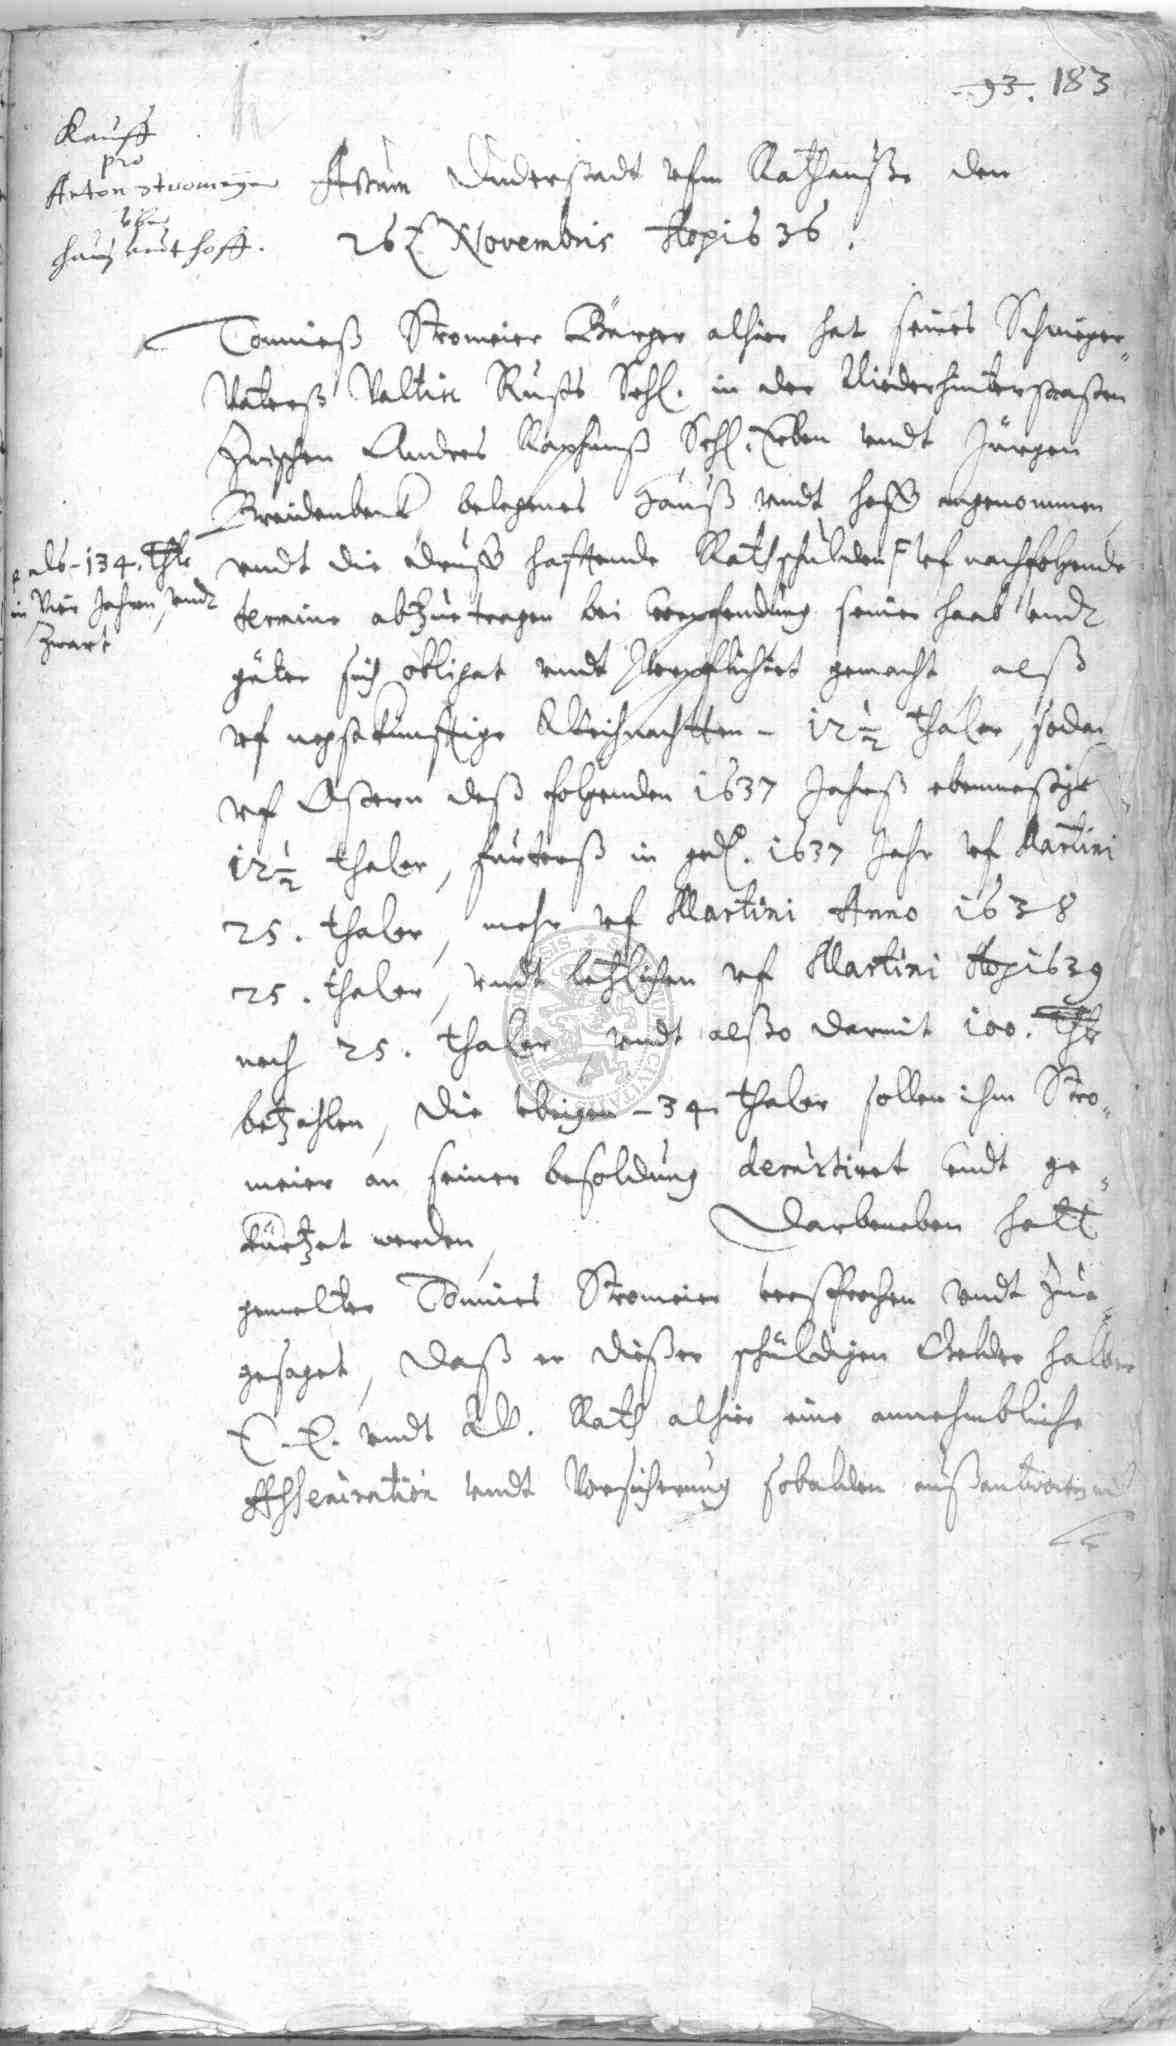 93. 183
Kauff
pro
Anton Stromeyer
über
hauß undt hoff.
Actum Duderstadt ufm Rathauße den
26 Novembris Ao 1636.
Tonnieß Stromeier Bürger alhier hat seines Schwieger-
Vaterß Valtin Rusts Sehl. in der Niederhinterstraßen
Zwischen Andres Raphuns Sehl. Erben undt Jürgen
Breidenbeck belegenes Hauß undt hoff angenommen
undt die druff haftende Rathschulden uf nachfolgende
als 134. Thlr
in Vier Jahren, undt
zwart
termine abzuetragen bei verpfendung seiner haab undt
güter sich obligat undt verpflichtet gemacht, alß
uf negstkünfftige Weihnachtten 12½ thaler, sodan
uf Ostern deß folgenden 1637 Jahrß ebenmeßig
12½ thaler, furterß in ged. 1637 Jahr uf Martini
25. thaler, mehr uf Martini Anno 1638
25. thaler, undt letzlichen uf Martini Ao 1639
noch 25. thaler, undt alßo damit 100. Thlr
bezahlen, die übrigen 34 thaler sollen ihm Stro-
meier an seiner besoldung decurtiret undt ge-
kürtzet werden, Darbeneben hatt
gemelter Tonnies Stromeier versprochen undt zue-
gesaget, daß er dießer schuldigen Gelder halber
E. E. undt W. Rath alhier eine annehmbliche
Assecuration undt Versicherung sobalden